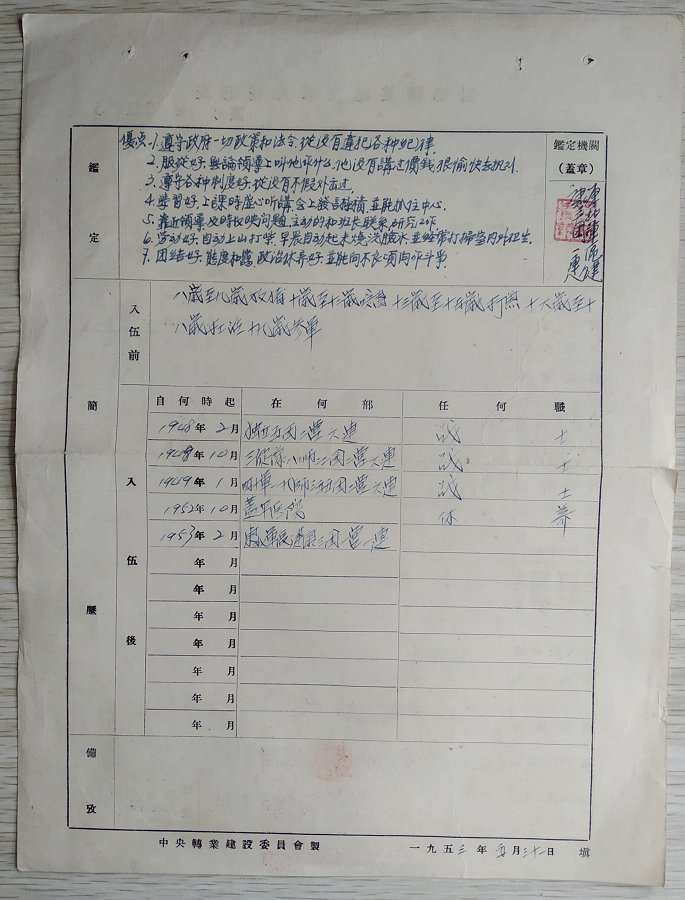 鑑定
優点1.遵守政府一切政策和法令,從没有違犯各种纪律.
2.服從好,無論領導上叫他作什么,他没有講过價钱很愉快去执行.
3.遵守各种制度好,從没有不假外出过.
4.学習好,上課時虚心听講会上發言積極,並能抓住中心.
5.靠近領導,及時反映问題,主动的和班长联系,研究工作
6.劳动好,自动上山打柴,早晨自动起来烧洗臉水並经常打掃室内外卫生.
7.团结好,態度和藹,政治休养好,並能向不良傾向作斗争.
鑑定機關
(蓋章)
簡歷
入伍前
八歲至九歲放猪十歲至十二歲唸書十三歲至十五歲
十六歲至十
八歲扛活十九歲参軍
入伍後
自何時起 在何部 任何職
1948年2月 二营六連 战士
1948年10月 師二团二营六連 战士
1949年1月 团二营六連 战士
1952年10月 盖平医院 休养
1953年2月 三团一营一連
年 月
年 月
年 月
年 月
年 月
年 月
年 月
備攷
中央轉業建設委員會製 一九五三年 五月三十一日 填